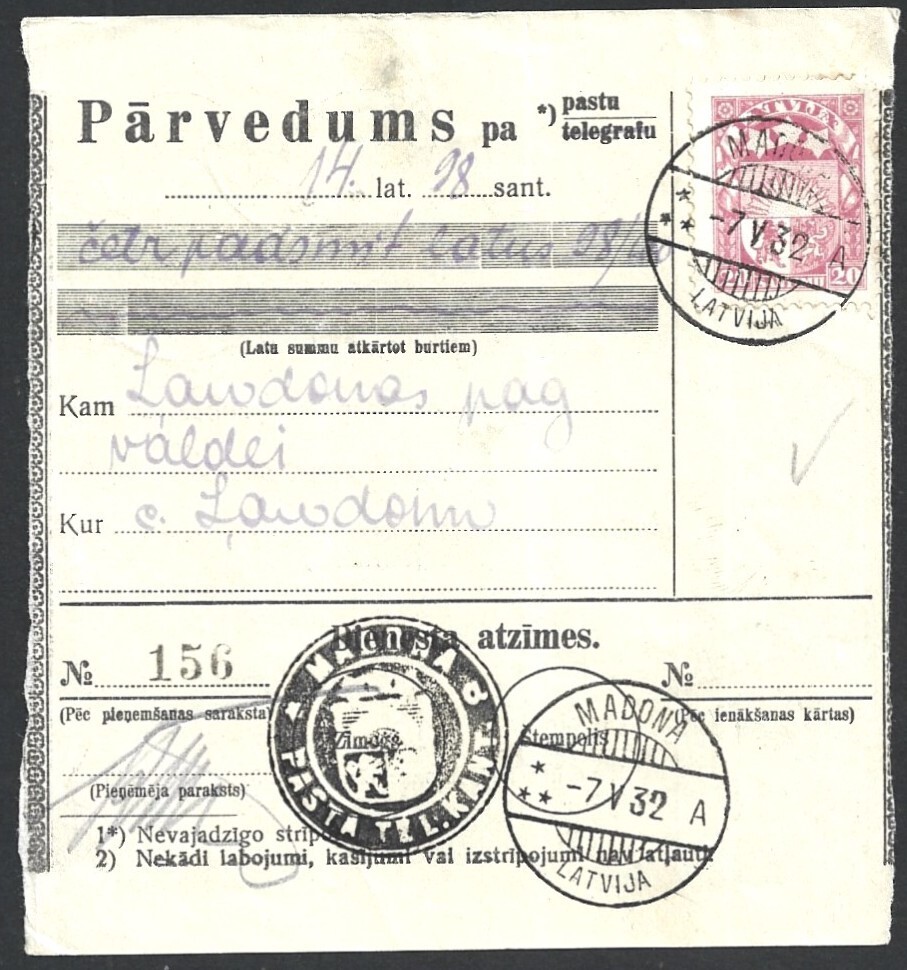 Pārvedums pa *) pastu
telegrafu
14. lat. 98 sant.
četrpadsmit latus 98/100
(Latu summu atkārtot burtiem)
Kam Ļaudonas pag
valdei
Kur c. Ļaudonu
LATVIJA
20
MADONA
-7 V 32 A
LATVIJA
Dienesta atzīmes.
№ 156
№
(Pēc pieņemšanas saraksta)
(Pēc ienākšanas kārtas)
Zīmogs
Stempelis
(Pieņēmēja paraksts)
MADONA
-7 V 32 A
LATVIJA
PASTA TEL. KANT
1*) Nevajadzīgo
2) Nekādi labojumi, kasījumi vai izstrīpojumi nav atļauti.